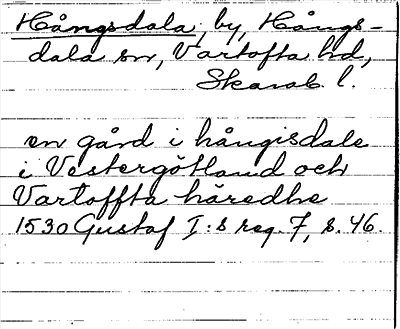 Hångsdala, by, Hångs-
dala sn, Vartofta hd,
Skarab. l.
en gård i hångisdale
i Vestergötland och
Vartoffta häredhe
1530 Gustaf I:s reg. 7, s. 46.